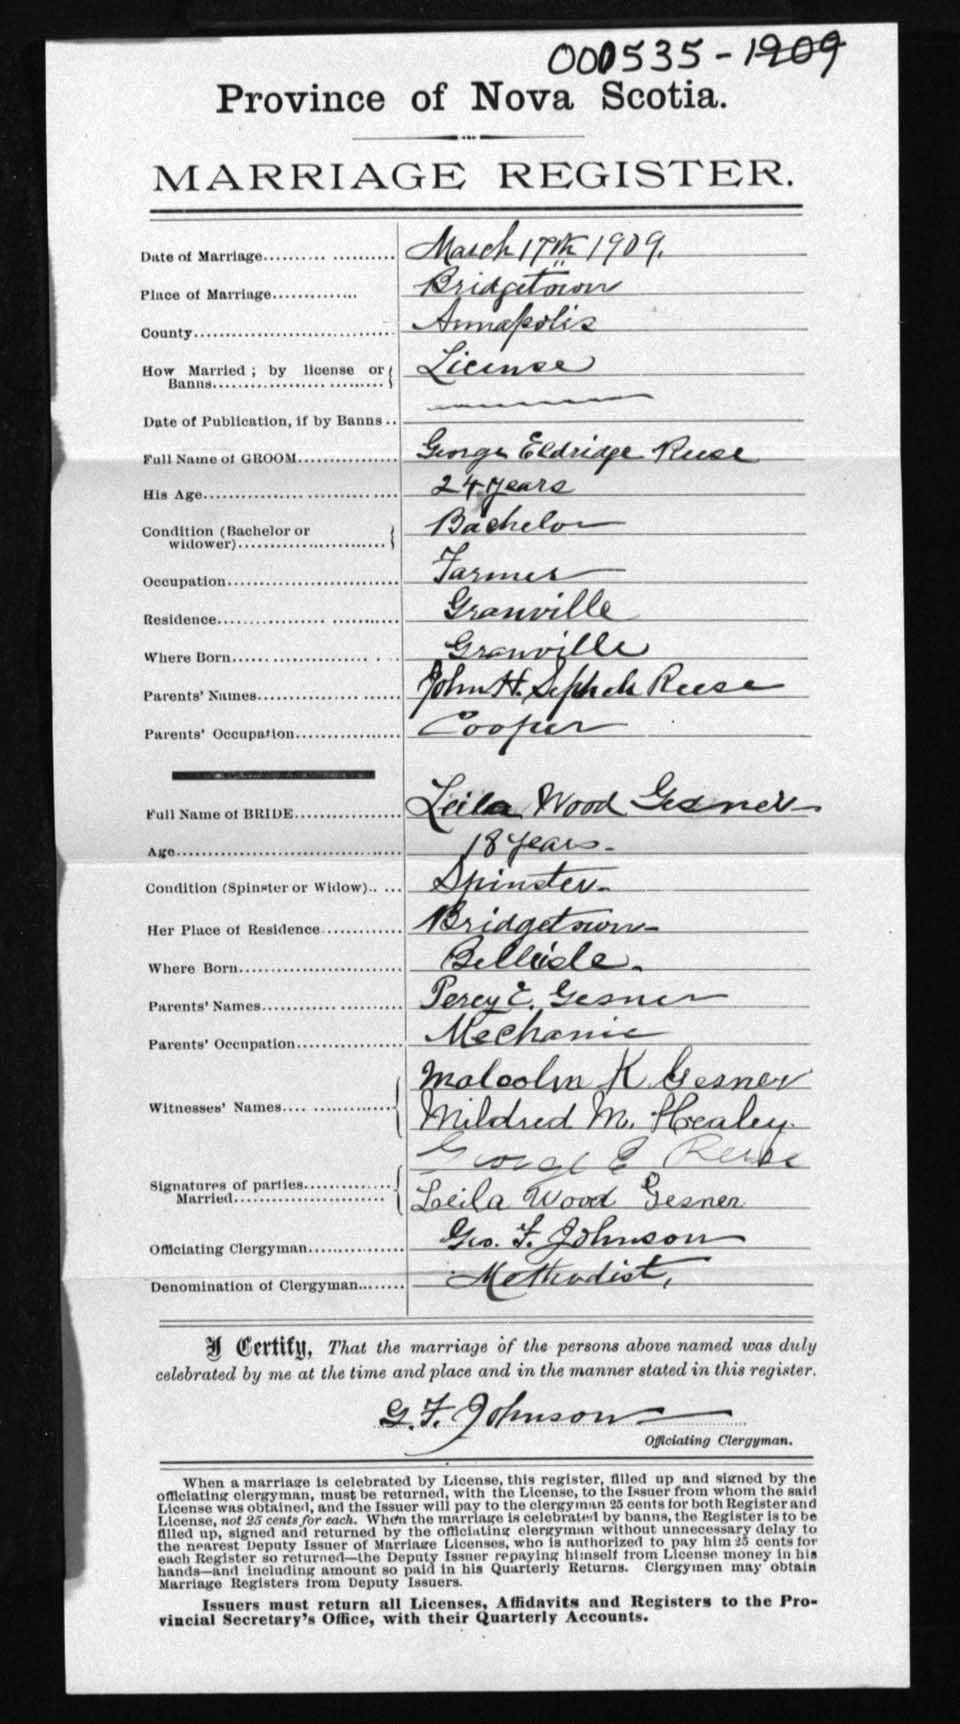 000535-1909
Province of Nova Scotia.
MARRIAGE REGISTER.
Date of Marriage.......... ........... March 17th 1909.
Place of Marriage.............. Bridgetown
County.............................. Annapolis
How Married ; by license or License
Banns.................... ..........
Date of Publication, if by Banns..
Full Name of GROOM............... George Eldridge Reese
His Age.............................. 24 years
Condition (Bachelor or Bachelor
widower)........................
Occupation.......................... Farmer
Residence................ .......... Granville
Where Born..................... . .. Granville
Parents' Names................ ...... John H. Reese
Parents' Occupation................ Cooper
Full Name of BRIDE................ Leila Wood Gesner
Age.................................. 18 years.
Condition (Spinster or Widow).. ... Spinster.
Her Place of Residence............ Bridgetown
Where Born......................... Bellisle.
Parents' Names...................... Percy E. Gesner
Parents' Occupation................ Mechanic
Malcolm K Gesner
Witnesses' Names.... .............. Mildred M. Healey.
George E Reese
Signatures of parties..............
Married....................... Leila Wood Gesner
Officiating Clergyman.............. Geo. F. Johnson
Denomination of Clergyman....... Methodist,
I Certify, That the marriage of the persons above named was duly
celebrated by me at the time and place and in the manner stated in this register.
G. F. Johnson
Officiating Clergyman.
When a marriage is celebrated by License, this register, filled up and signed by the
officiating clergyman, must be returned, with the License, to the Issuer from whom the said
License was obtained, and the Issuer will pay to the clergyman 25 cents for both Register and
License, not 25 cents for each. When the marriage is celebrated by banns, the Register is to be
filled up, signed and returned by the officiating clergyman without unnecessary delay to
the nearest Deputy Issuer of Marriage Licenses, who is authorized to pay him 25 cents for
each Register so returned—the Deputy Issuer repaying himself from License money in his
hands—and including amount so paid in his Quarterly Returns. Clergymen may obtain
Marriage Registers from Deputy Issuers.
Issuers must return all Licenses, Affidavits and Registers to the Pro-
vincial Secretary's Office, with their Quarterly Accounts.